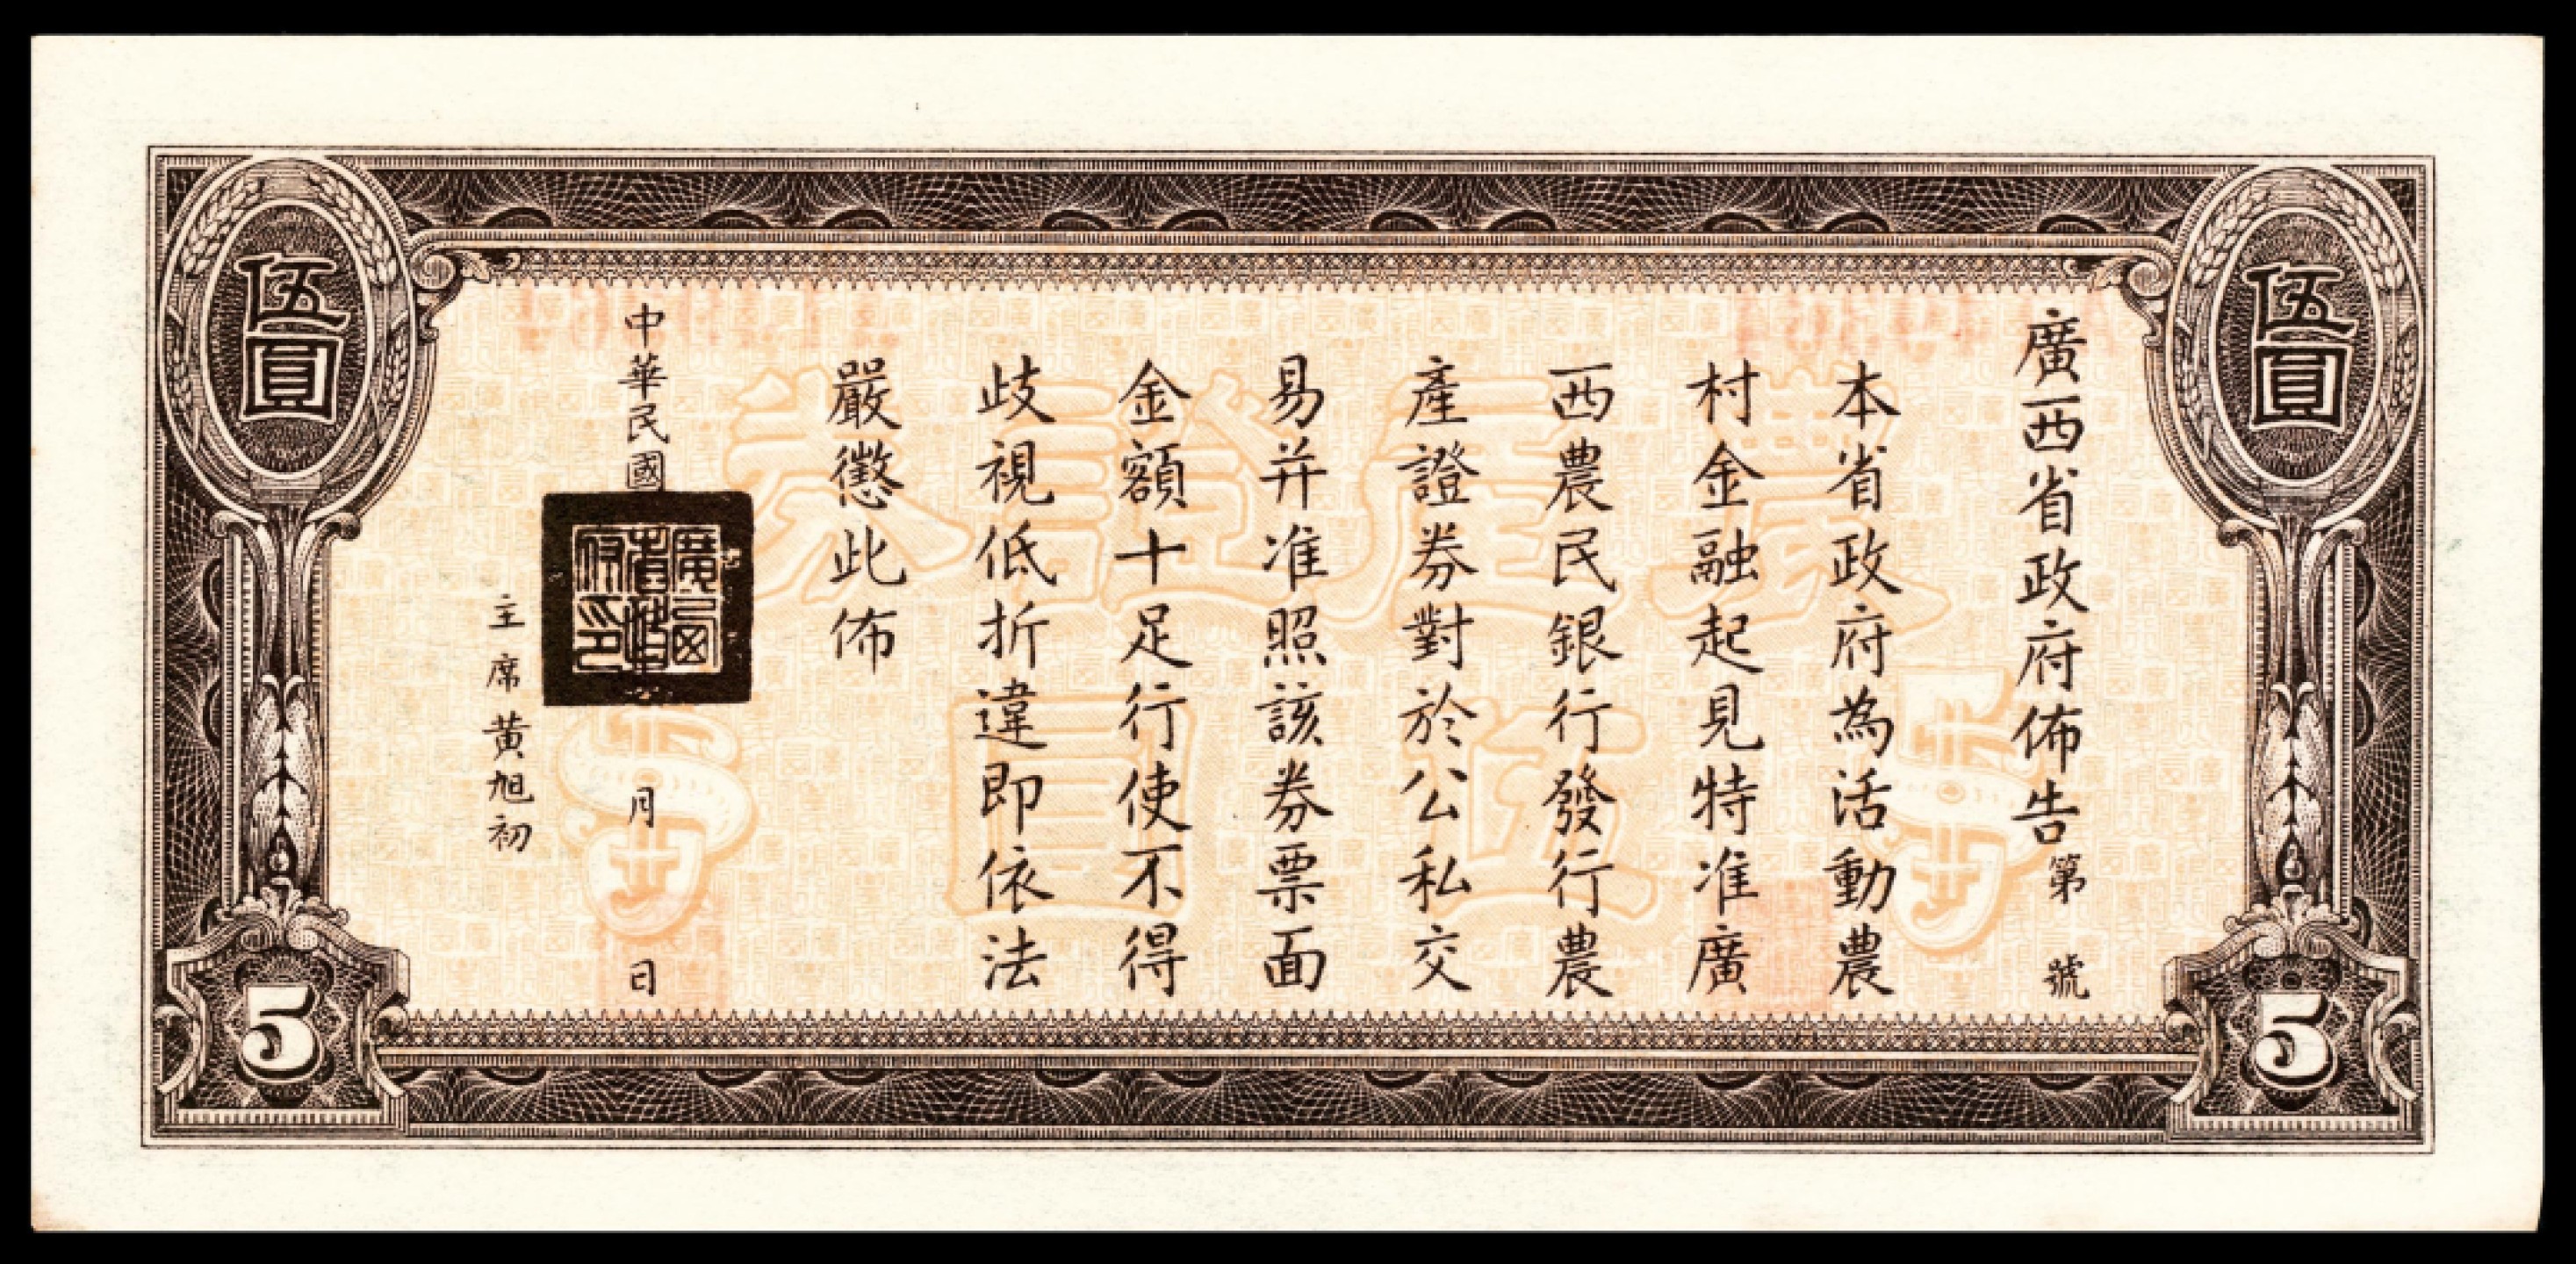 廣西省政府佈告第 號
本省政府為活動農
村金融起見特准廣
西農民銀行發行農
產證券對於公私交
易并准照該券票面
金額十足行使不得
歧視低折違即依法
嚴懲此佈
中華民國 月 日
主席黃旭初
廣西
省政
府印
伍圓
伍圓
農產證券
伍圓
5
5